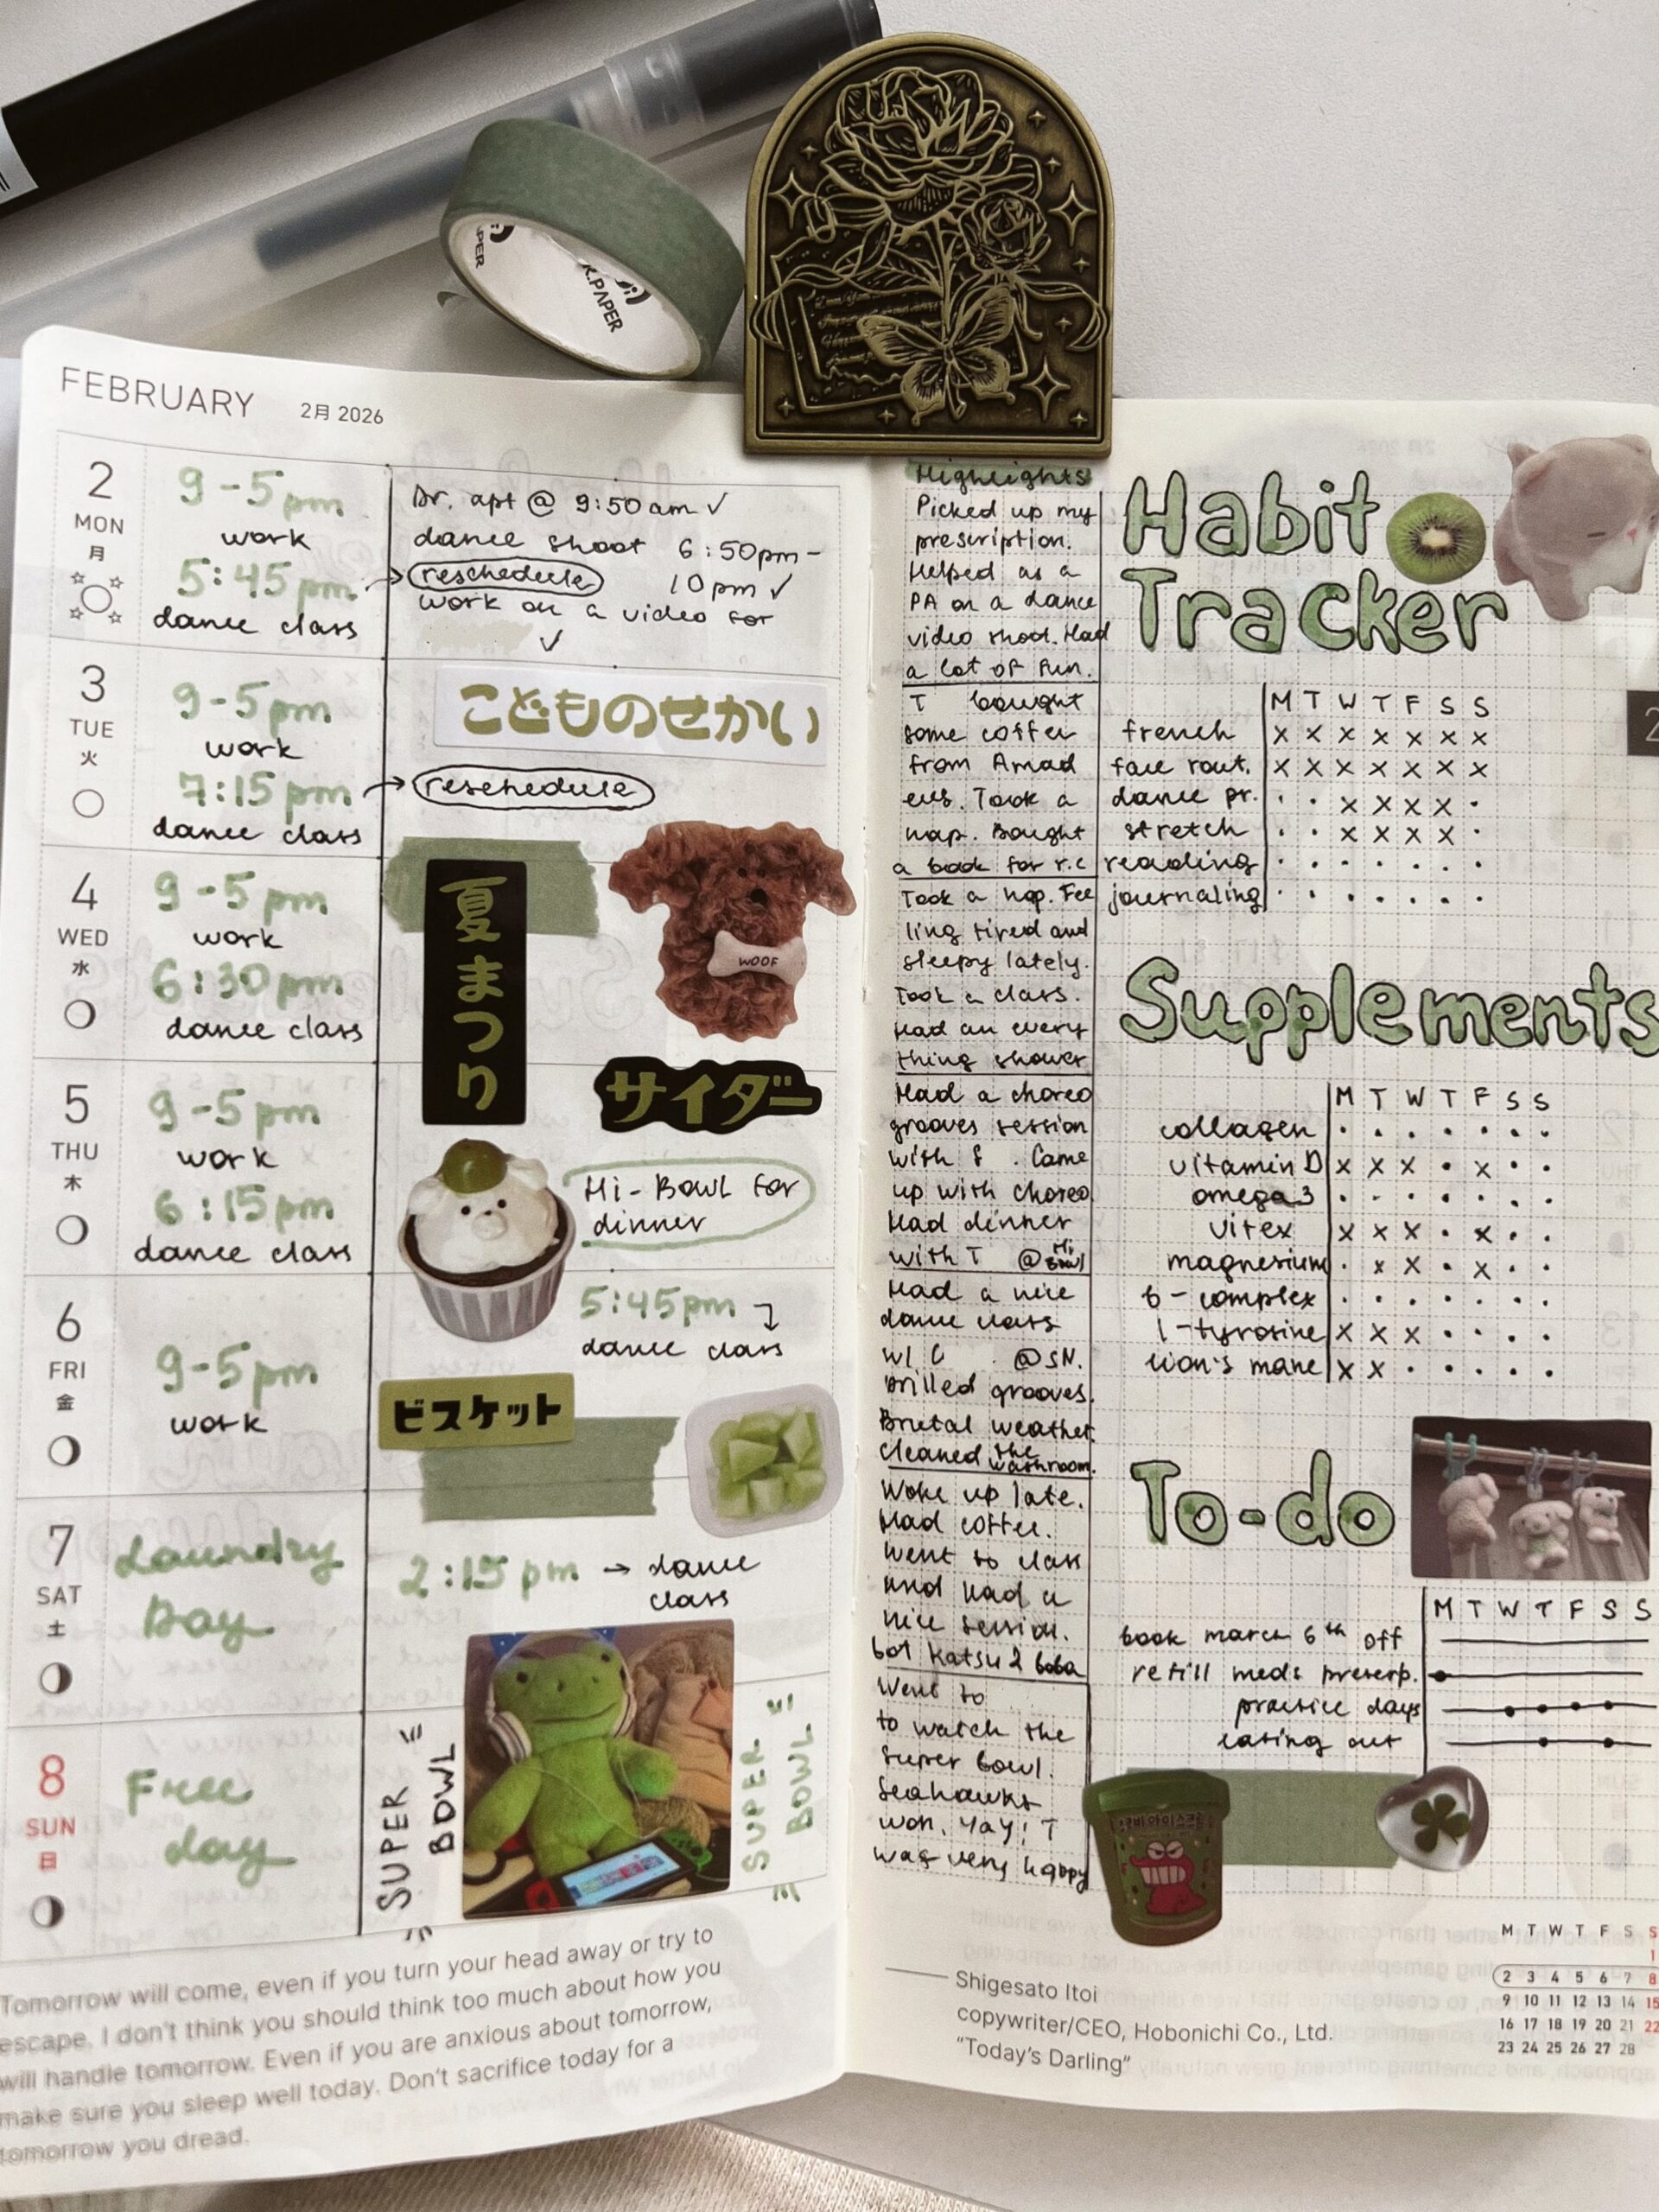 K.PAPER
FEBRUARY 2月 2026
2
MON
月
9-5pm
work
5:45pm
dance class
Dr. apt @ 9:50am ✓
dance shoot 6:50pm-
reschedule 10pm ✓
work on a video for
✓
3
TUE
火
9-5pm
work
7:15pm
dance class
こどものせかい
reschedule
4
WED
水
9-5pm
work
6:30pm
dance class
夏まつり
WOOF
サイダー
5
THU
木
9-5pm
work
6:15pm
dance class
Hi-Bowl for
dinner
6
FRI
金
9-5pm
work
5:45pm
dance class
ビスケット
7
SAT
土
Laundry
Day
2:15pm → dance
class
8
SUN
日
Free
day
SUPER
BOWL
SUPER
BOWL
Tomorrow will come, even if you turn your head away or try to
escape. I don't think you should think too much about how you
will handle tomorrow. Even if you are anxious about tomorrow,
make sure you sleep well today. Don't sacrifice today for a
tomorrow you dread.
Highlights
Picked up my
prescription.
Helped as a
PA on a dance
video shoot. Had
a lot of fun.
T bought
some coffee
from Amad
eus. Took a
nap. Bought
a book for r.c
Took a nap. Fee
ling tired and
sleepy lately.
Took a class.
Had an every
thing shower
Had a choreo
grooves session
with S . Came
up with choreo
Had dinner
with T @ Hi
Bowl
Had a nice
dance class
w/ C @SN.
Drilled grooves.
Brutal weather.
cleaned the
washroom.
Woke up late.
Had coffee.
Went to class
and had a
nice session.
Got Katsu & boba
Went to
to watch the
Super Bowl.
Seahawks
won. Yay! T
was very happy
Habit
Tracker
M T W T F S S
french x x x x x x x
face rout. x x x x x x x
dance pr. · · x x x x ·
stretch · · x x x x ·
reading · · · · · · ·
journaling · · · · · · ·
Supplements
M T W T F S S
collagen · · · · · · ·
vitamin D x x x · x · ·
omega 3 · · · · · · ·
vitex x x x · x · ·
magnesium · x x · x · ·
b-complex · · · · · · ·
l-tyrosine x x x · · · ·
lion's mane x x · · · · ·
To-do
M T W T F S S
book march 6th off
refill meds prescrp.
practice days
eating out
Shigesato Itoi
copywriter/CEO, Hobonichi Co., Ltd.
"Today's Darling"
M T W T F S S
1
2 3 4 5 6 7 8
9 10 11 12 13 14 15
16 17 18 19 20 21 22
23 24 25 26 27 28
2